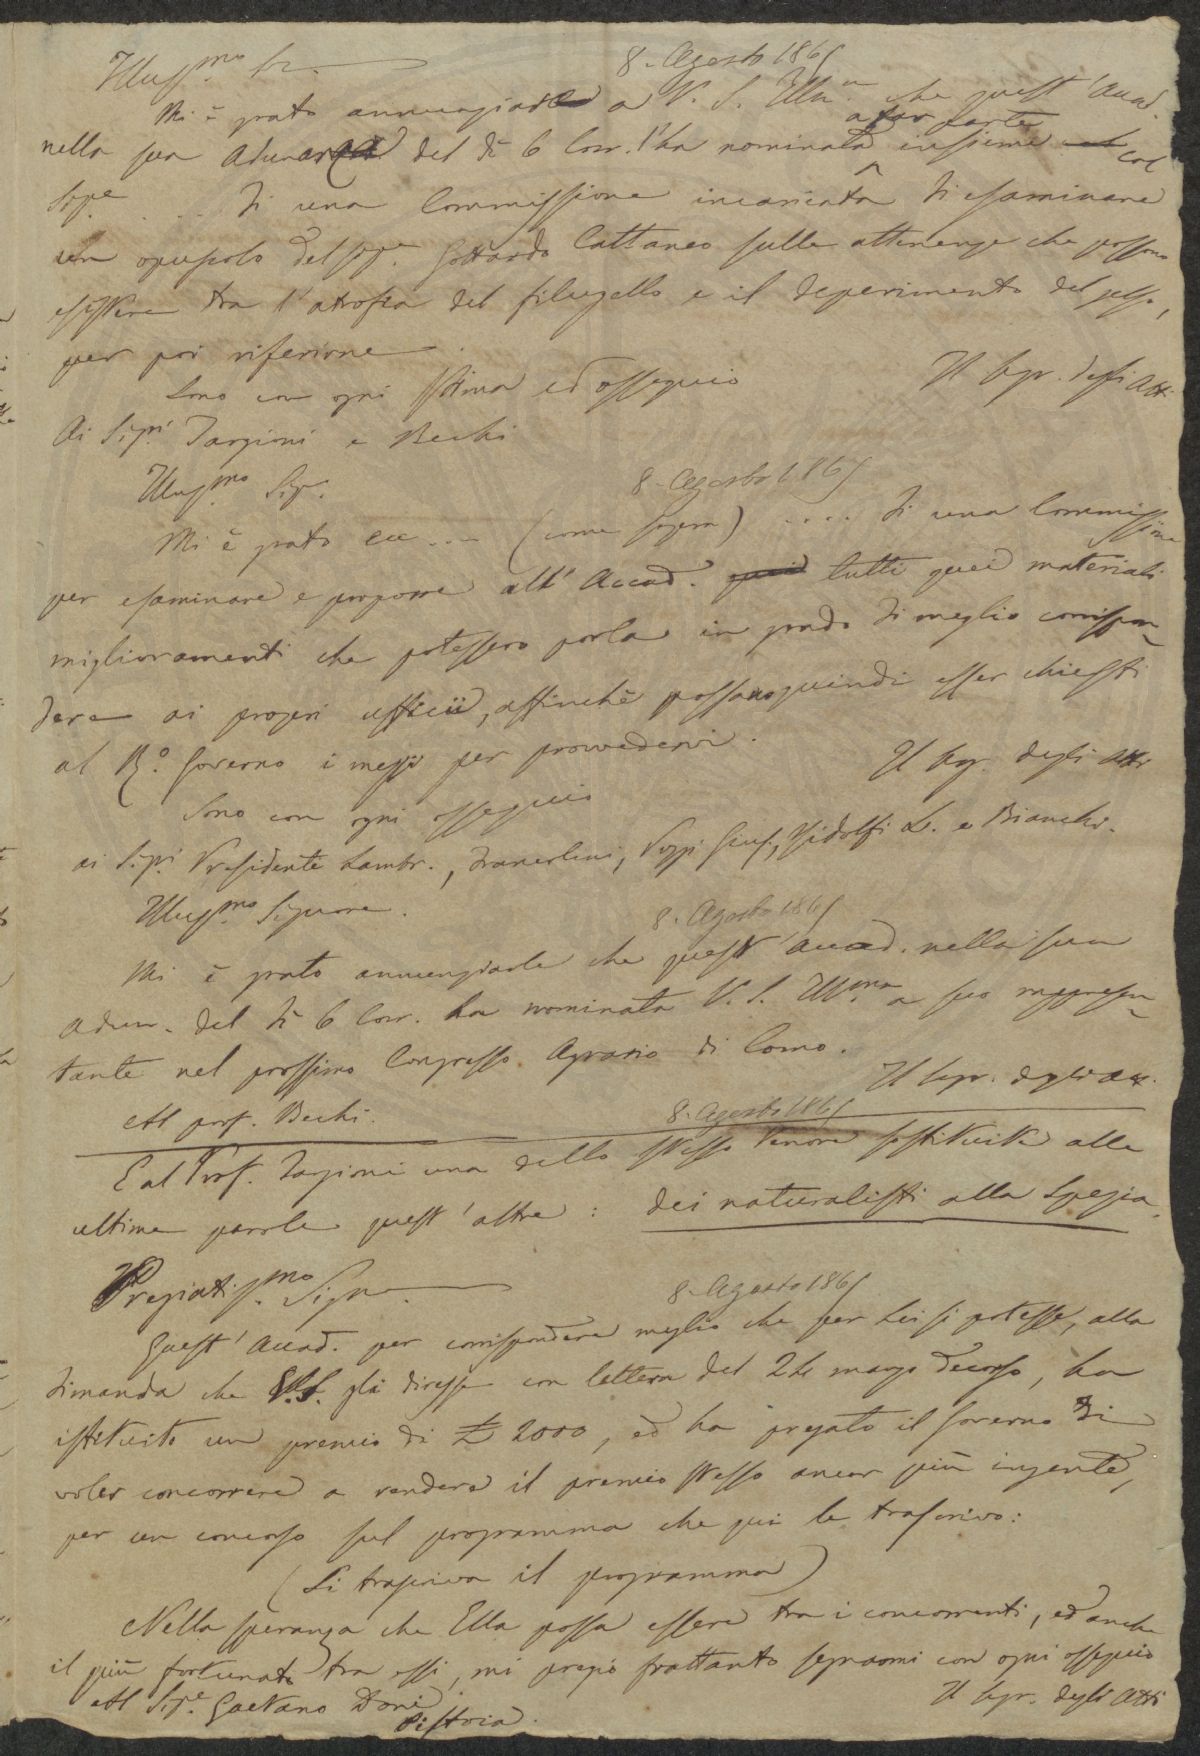 Illuss.mo Sr. 8. Agosto 1865
Mi è grato annunziarle a V. S. Illu.a che quest'Accad.
nella sua adunanza del dì 6 Corr. l'ha nominata a far parte insieme col
Sig.e .... di una Commissione incaricata di esaminare
un opuscolo del Sig.e Gottardo Cattaneo sulle attenenze che possono
esistere tra l'atrofia del filugello e il deperimento del gelso,
per poi riferirne.
Sono con ogni stima ed ossequio Il Segr. degli Atti
Ai Sig.ri Targioni e Bechi
Illuss.mo Sigr. 8. Agosto 1865
Mi è grato ecc .... (come sopra) .... di una Commissione
per esaminare e proporre all'Accad. tutti quei materiali
miglioramenti che potessero porla in grado di meglio corrispon-
dere ai propri ufficii, affinchè possano quindi esser chiesti
al R.o Governo i mezzi per provvedervi.
Sono con ogni ossequio Il Segr. degli Atti
ai Sig.ri Presidente Lambr., Franceschini, Pozzi Gius., Ridolfi L. e Bianchi.
Illuss.mo Signore. 8. Agosto 1865
Mi è grato annunziarle che quest'Accad. nella sua
adun. del dì 6 Corr. ha nominata V. S. Ill.ma a suo rappresen-
tante nel prossimo Congresso Agrario di Como.
Il Segr. degli Atti.
Al prof. Bechi.
8. Agosto 1865
E al Prof. Targioni una dello stesso tenore sostituite alle
ultime parole quest'altre: dei naturalisti alla Spezia.
Pregiatiss.mo Signe. 8. Agosto 1865
Quest'Accad. per corrispondere meglio che per Lei si potesse, alla
dimanda che V.S. gli diresse con lettera del 24 marzo decorso, ha
istituito un premio di £ 2000, ed ha pregato il Governo di
voler concorrere a rendere il premio stesso ancor più ingente,
per un concorso sul programma che qui le trascrivo:
(Si trascriva il programma)
Nella speranza che Ella possa essere tra i concorrenti, ed anche
il più fortunato tra essi, mi pregio frattanto segnarmi con ogni ossequio
Al Sig.e Gaetano Doni Il Segr. degli Atti
Pistoia.